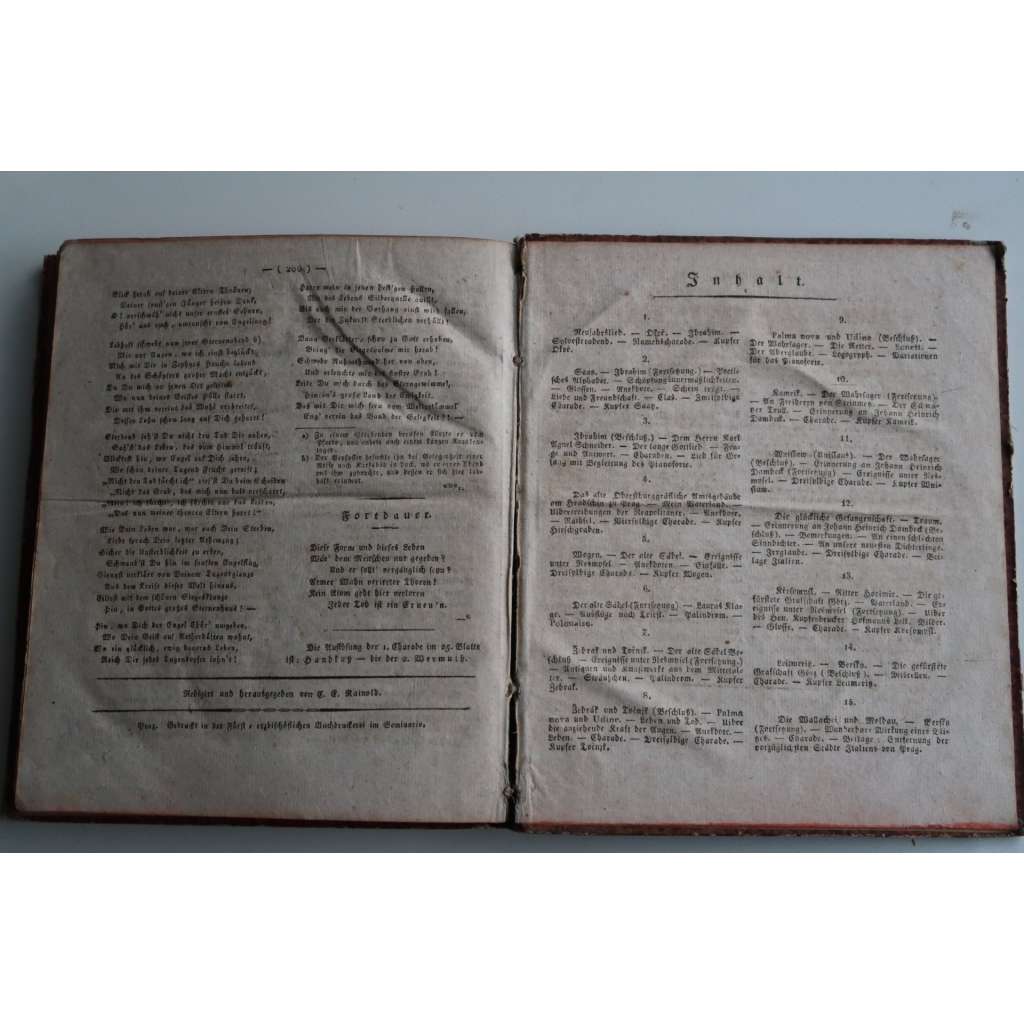 — ( 200 ) —
Blick herab auf deiner Eltern Thränen;
Deiner treu'gen Jünger heißen Dank,
O! verschmäh' nicht unser ernstes Sehnen,
Hör' uns noch, umrauscht von Engelsang!
Lebhaft schwebt, nun zwey Sternenabend b)
Mir vor Augen, wo ich einst beglückt;
Mich mit Dir in Zephyrs Hauche labend
An des Schöpfers großer Macht entzückt,
Da Du mich zu jenen Ort geleitet
Wo nun deines Geistes Hülle starrt,
Die mit ihm vereint das Wohl verbreitet,
Dessen Lohn schon lang auf Dich geharrt!
Sterbend seh'st Du nicht den Tod Dir nahen,
Sah'st das Leben, das vom Himmel träuft,
Blickest hin, wo Engel auf Dich sahen,
Wo schon deiner Tugend Frucht gereift;
„Nicht den Tod fürcht ich“ riefst Du beim Scheiden
„Nicht das Grab, das mich nun bald verscharrt,
„Das nun meiner theuren Eltern harrt!“
Wie Dein Leben war, war auch Dein Sterben,
Liebe sprach Dein letzter Athemzug;
Sicher die Unsterblichkeit zu erben,
Schwang'st Du hin im sanften Engelflug,
Giengst verklärt von Deinem Tugendglanze
Aus dem Kreise dieser Welt hinaus,
Eiltest mit dem schönen Siegeskranze
Hin, in Gottes großes Sternenhaus! —
Hin, wo Dich der Engel Chör' umgeben,
Wo Dein Geist auf Aetherhöhen wohnt,
Wo ein glücklich, ewig dauernd Leben,
Reich Dir jedes Tugendopfer lohn't!
Harre mein in jenen heil'gen Hallen,
Wo des Lebens Silberquelle quillt,
Bis auch mir der Vorhang einst wird fallen,
Der die Zukunft Sterblichen verhüllt!
Dann Verklärter, schon zu Gott erhoben,
Bring' die Siegespalme mir herab!
Schwebe Ruhathmend her von oben,
Und erleichtre mir des Trost Grab!
Leite Du mich durch das Sterngewimmel,
Hin in's große Land der Ewigkeit.
Das mit Dir mich fern vom Weltgetümmel
Eng' verein das Band der Seligkeit! —
a) Zu einem Sterbenden berufen stürzte er vom
Pferde, und bekam auch einen langen Krankenlager.
b) Der Verfasser besuchte ihn bei Gelegenheit einer
Reise nach
mit ihm zubrachte, und dessen er sich hier lebhaft erinnert.
Fortdauer.
Diese Form und dieses Leben
Wär' dem Menschen nur gegeben?
Und er sollt' vergänglich seyn?
Armer Wahn verirrter Thoren!
Kein Atom geht hier verloren
Jeder Tod ist ein Erneu'n.
Die Auflösung der 1. Charade im 25. Blatte
ist: Handkuß — die der 2. Wermuth.
Redigirt und herausgegeben von C. E. Rainold.
Prag. Gedruckt in der Fürst-erzbischöflichen Buchdruckerei im Seminario.
Inhalt.
1.
Neujahrslied. — Okoř. — Ibrahim. —
Sylvesterabend. — Namenscharade. — Kupfer
Okoř.
2.
Saaz. — Ibrahim (Fortsetzung). — Poetisches
Alphabet. — Schöpfung
— Glossen. — Anekdote. — Schein trügt. —
Liebe und Freundschaft. — Elas. — Zweisylbige
Charade. — Kupfer Saaz.
3.
Ibrahim (Beschluß.) — Dem Herrn Karl
Agnel Schneider. — Der lange Gottlieb. — Frage
und Antwort. — Charaden. — Lied für Gesang
mit Begleitung des Pianoforte.
4.
Das alte Oberstburggräfliche Amtsgebäude
am Hradschin zu Prag. — Mein Vaterland. —
der Neapolitaner. — Anekdote.
— Räthsel. — Viersylbige Charade. — Kupfer
Hirschgraben.
5.
Mogen. — Der alte Säbel. — Ereignisse
unter Rebmysel. — Anekdoten. — Einfälle. —
Dreisylbige Charade. — Kupfer Mogen.
6.
Der alte Säbel (Fortsetzung) — Lauras Klage.
— Ausflüge nach Triest. — Palindrom. —
Polonaise.
7.
Zebrak und Točnik. — Der alte Säbel Beschluß
— Ereignisse unter Nesmysel (Fortsetzung.)
— Antiquen und Kunstwerke aus dem Mittelalter.
— Sträußchen. — Palindrom. — Kupfer
Zebrak.
8.
Žebrák und Točnik (Beschluß). — Palma
nova und Udine. — Leben und Tod. — Uiber
die anziehende Kraft der Augen. — Anekdote. —
Leben. — Charade. — Dreisylbige Charade. —
Kupfer Točnik.
9.
Palma nova und Udine (Beschluß). —
Der Wahrsager. — Die Retter. — Sonett. —
Der Aberglaube. — Logogryph. — Variationen
für das Pianoforte.
10.
Kameik. — Der Wahrsager (Fortsetzung)
— An Freiherrn von Steinmey. — Der Schwager
Traum. — Erinnerung an Johann Heinrich
Dambeck. — Charade. — Kupfer Kameik.
11.
— Der Wahrsager
(Beschluß). — Erinnerung an Johann Heinrich
Dambeck (Fortsetzung). — Ereignisse unter Nesmysel.
— Dreisylbige Charade. — Kupfer
12.
Die glückliche Gefangenschaft. — Traum.
— Erinnerung an Johann Heinrich Dambeck (Beschluß).
— Bemerkungen. — An einen schlechten
Sinndichter. — An unsere neuesten Dichterlinge.
— Irrglaube. — Dreisylbige Charade. — Beilage
Italien.
13.
— Ritter Horimir. — Die gefürstete
Grafschaft Görz. — Vaterland. — Ereignisse
unter Nesmysel (Fortsetzung). — Uiber
des Hen. Kupferdrucker Hofmanns Lith. Bilder.
— Glosse. — Charade. — Kupfer
14.
Leitmeritz. — Versky. — Die gefürstete
Grafschaft Görz (Beschluß). — Miscellen. —
Charade. — Kupfer Leitmeritz.
15.
Die Wallachei und Moldau. — Versky
(Fortsetzung). — Wunderbare Wirkung eines Blitzes.
— Charade. — Beilage: Entfernung der
vorzüglichsten Städte Italiens von Prag.